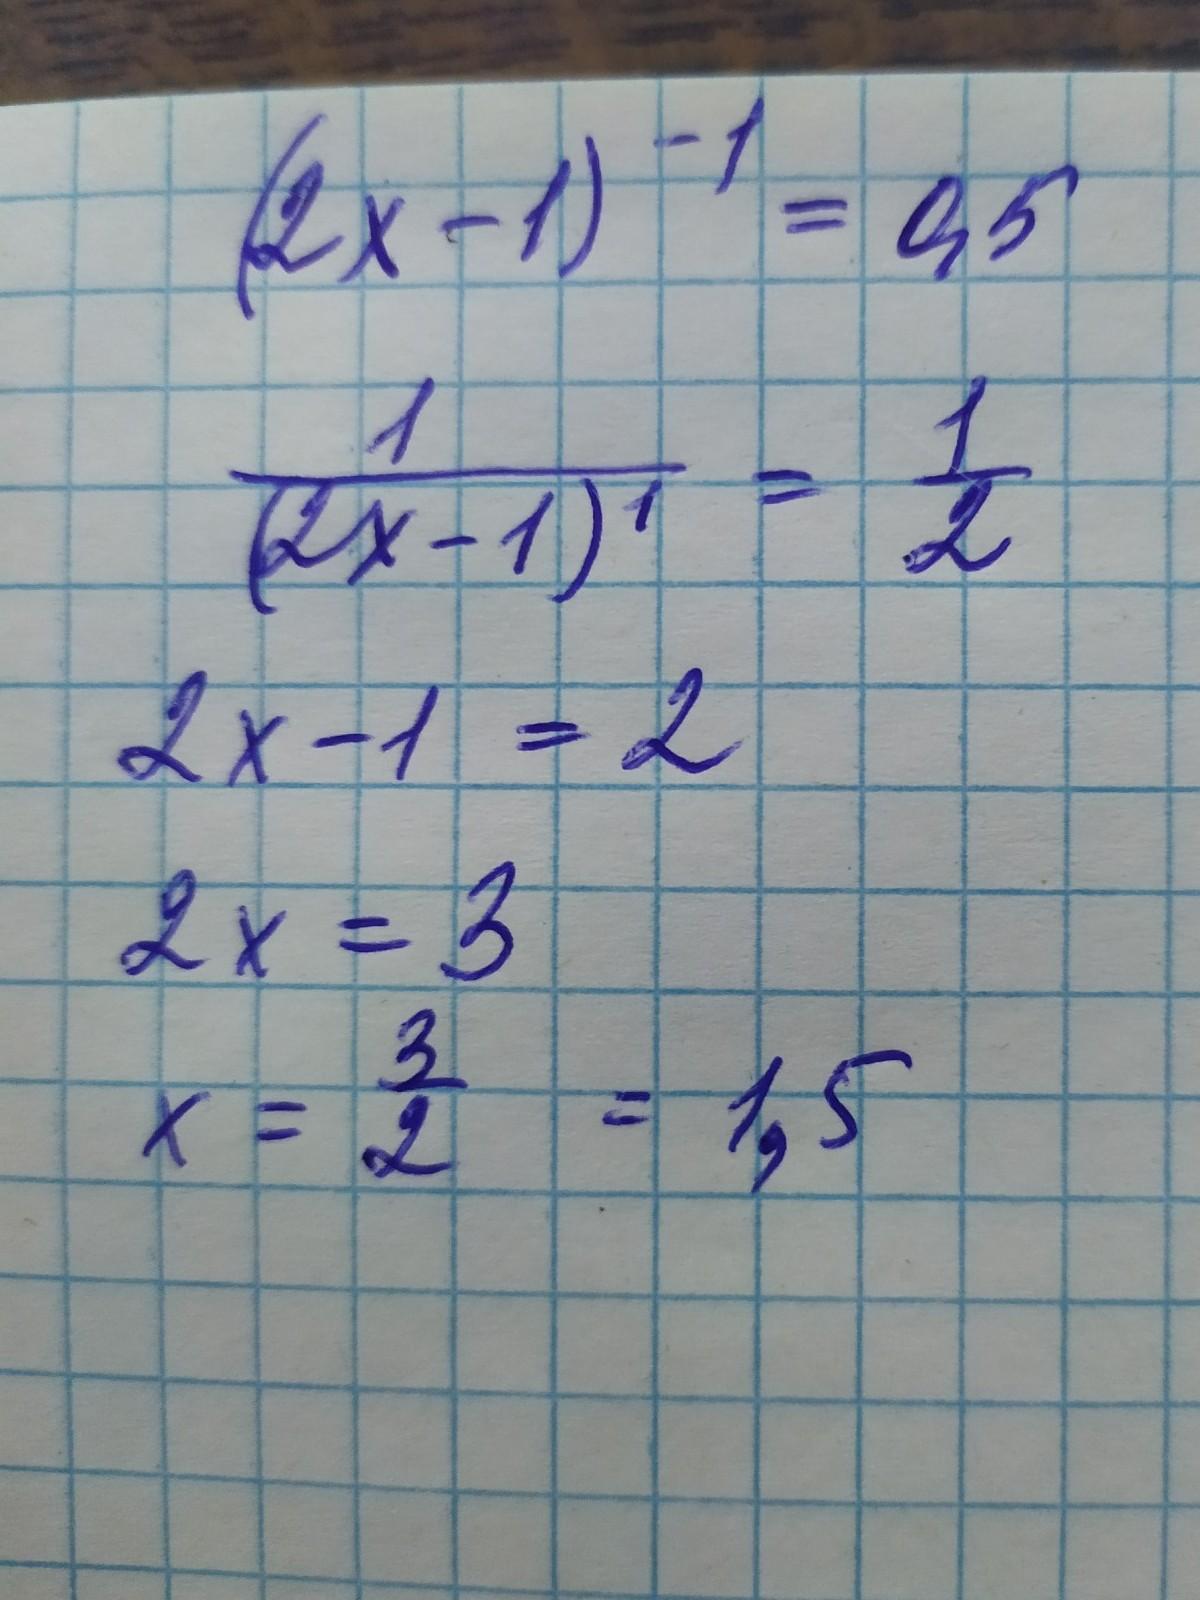 (2x-1)⁻¹ = 0,5
1/(2x-1)¹ = 1/2
2x-1 = 2
2x = 3
x = 3/2 = 1,5